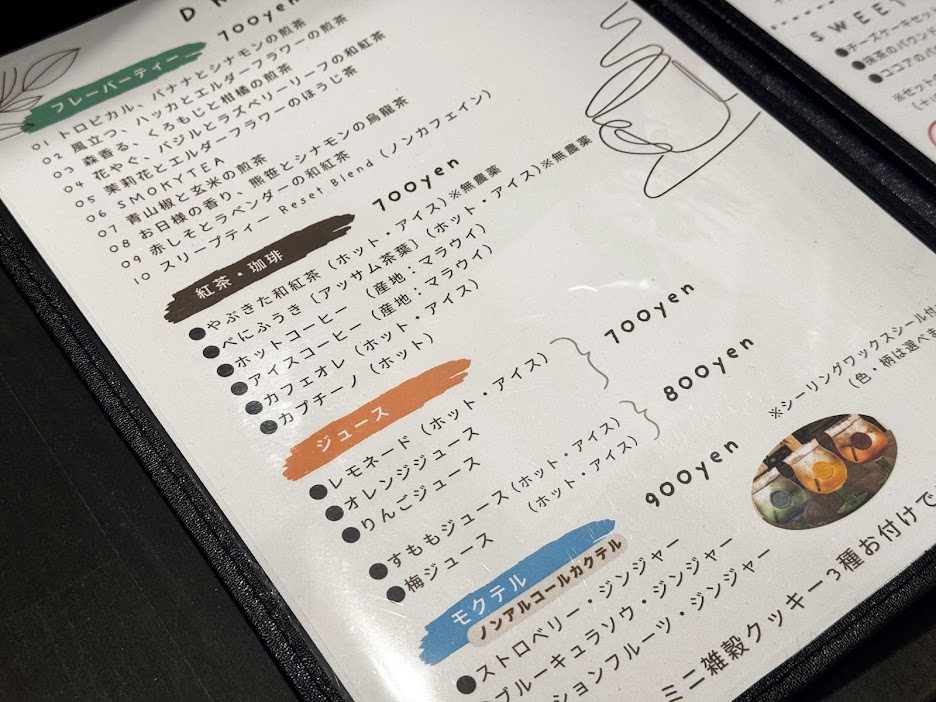 D R
フレーバーティー 700yen
01 トロピカル、バナナとシナモンの煎茶
02 風立つ、ハッカとエルダーフラワーの煎茶
03 森香る、くろもじと柑橘の煎茶
04 花やぐ、バジルとラズベリーリーフの和紅茶
05 茉莉花とエルダーフラワーのほうじ茶
06 SMOKYTEA
07 青山椒と玄米の煎茶
08 お日様の香り、熊笹とシナモンの烏龍茶
09 赤しそとラベンダーの和紅茶
10 スリープティー Reset Blend (ノンカフェイン)
紅茶・珈琲 700yen
●やぶきた和紅茶 (ホット・アイス)※無農薬
●べにふうき [アッサム茶葉] (ホット・アイス)※無農薬
●ホットコーヒー (産地:マラウイ)
●アイスコーヒー (産地:マラウイ)
●カフェオレ (ホット・アイス)
●カプチーノ (ホット)
ジュース
●レモネード (ホット・アイス)
●オレンジジュース
●りんごジュース
700yen
●すももジュース(ホット・アイス)
●梅ジュース (ホット・アイス)
800yen
モクテル 900yen
ノンアルコールカクテル
●ストロベリー・ジンジャー
ブルーキュラソウ・ジンジャー
ションフルーツ・ジンジャー
※シーリングワックスシール付
(色・柄は選べま
ミニ雑穀クッキー3種お付けで
SWEET
●チーズケーキセッ
●抹茶のパウンド
●ココアのパ
※セット